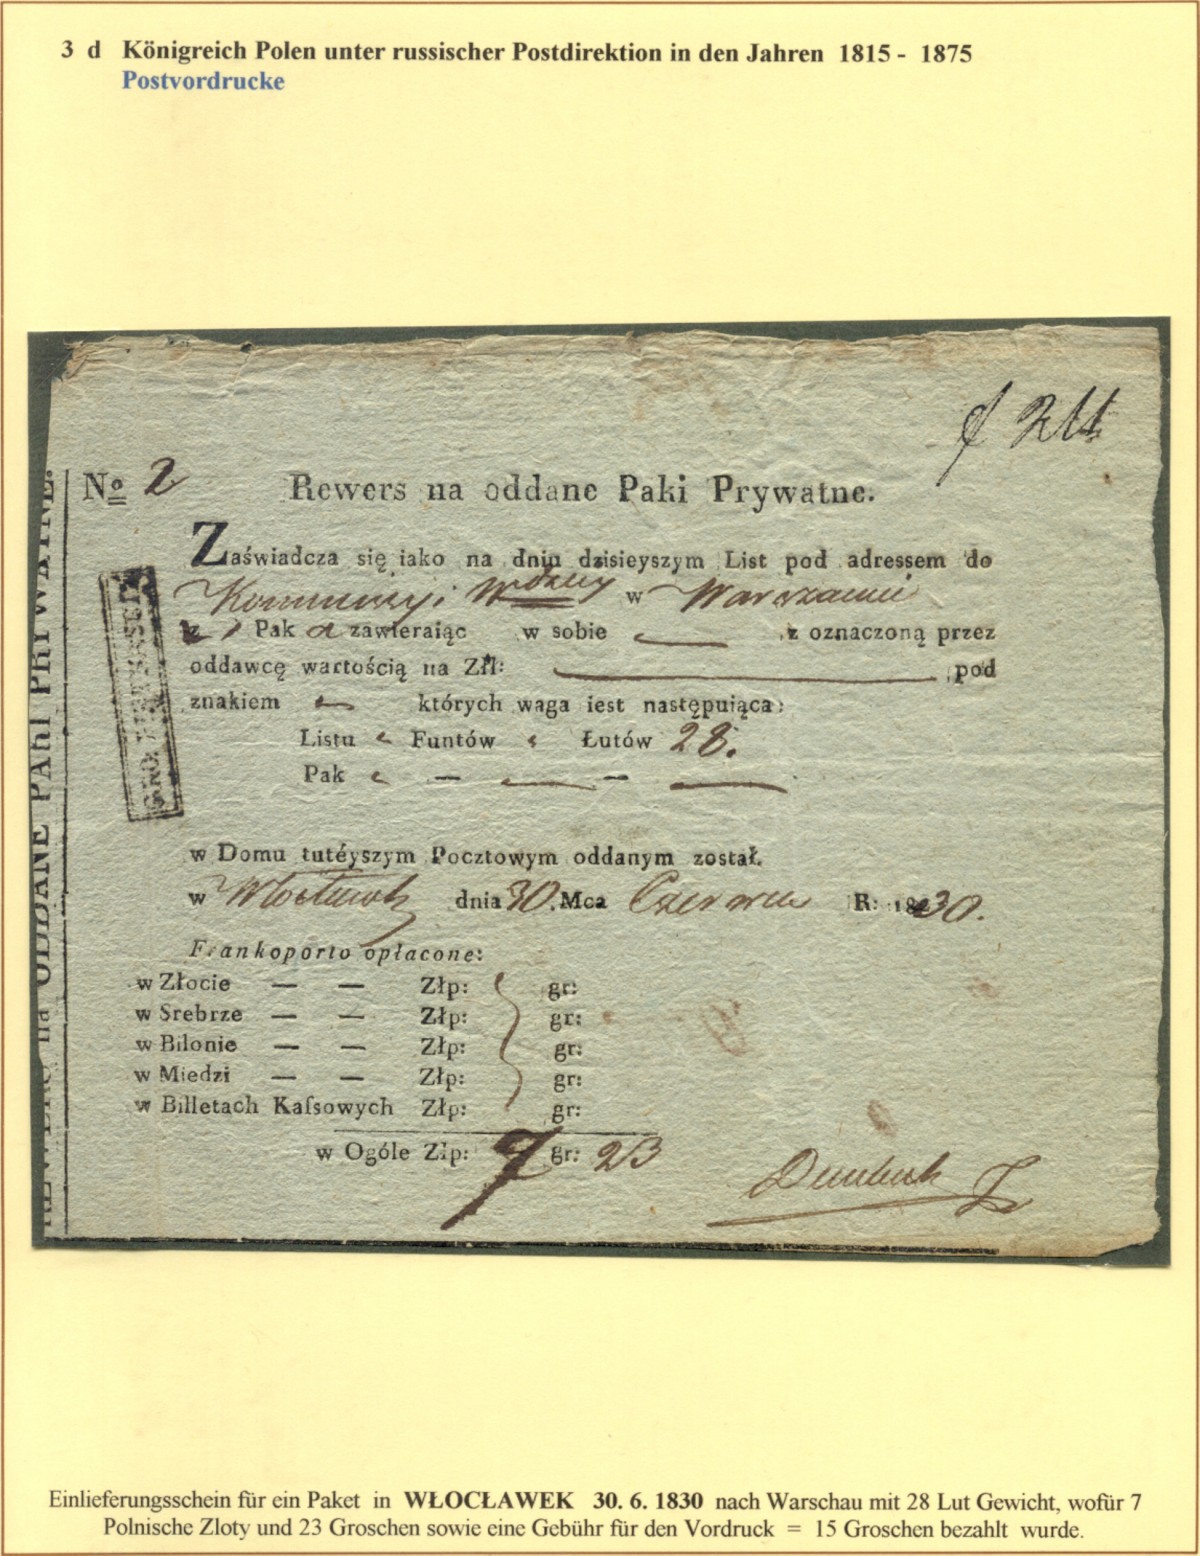 3 d Königreich Polen unter russischer Postdirektion in den Jahren 1815 - 1875
Postvordrucke
No 2 Rewers na oddane Paki Prywatne.
Zaświadcza się iako na dniu dzisieyszym List pod adressem do
w Warszawie
z 1 Pak a zawieraiąc w sobie z oznaczoną przez
oddawcę wartością na Złł: pod
znakiem których waga iest następuiąca:
Listu Funtów Łutów 28.
Pak — —
w Domu tutéyszym Pocztowym oddanym został.
w Włocławek dnia 30. Mca Czerwca R: 1830.
Frankoporto opłacone:
w Złocie — — Złp: gr:
w Srebrze — — Złp: gr:
w Bilonie — — Złp: gr:
w Miedzi — — Złp: gr:
w Billetach Kaſsowych Złp: gr:
w Ogóle Złp: 7 gr: 23
REWERS na ODDANE PAKI PRYWATNE.
Einlieferungsschein für ein Paket in WŁOCŁAWEK 30. 6. 1830 nach Warschau mit 28 Lut Gewicht, wofür 7
Polnische Zloty und 23 Groschen sowie eine Gebühr für den Vordruck = 15 Groschen bezahlt wurde.